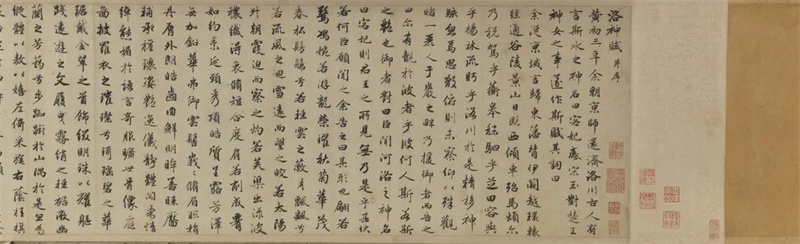 洛神賦 并序
黃初三年余朝京師還濟洛川古人有
言斯水之神名曰宓妃感宋玉對楚王
神女之事遂作斯賦其詞曰
余從京域言歸東藩背伊闕越轘轅
經通谷陵景山日既西傾車殆馬煩尔
乃稅駕乎蘅皋秣駟乎芝田容與
乎楊林流眄乎洛川於是精移神
駭忽焉思散俯則未察仰以殊觀
睹一麗人于巖之畔乃援御者而告之
曰尔有覿於彼者乎彼何人斯若斯
之豔也御者對曰臣聞河洛之神名
曰宓妃則君王之所見無乃是乎其狀
若何臣願聞之余告之曰其形也翩若
驚鴻婉若游龍榮曜秋菊華茂
春松髣髴兮若輕雲之蔽月飄飄兮
若流風之迴雪遠而望之皎若太陽
升朝霞迫而察之灼若芙蕖出淥波
穠纖得衷脩短合度肩若削成腰
如約素延頸秀項皓質呈露芳澤
無加鉛華弗御雲髻峩峩脩眉聯娟
丹脣外朗皓齒內鮮明眸善睞靨
輔承權瓌姿豔逸儀靜體閑柔情
綽態媚於語言奇服曠世骨像應
圖披羅衣之璀璨兮珥瑤碧之華
琚戴金翠之首飾綴明珠以耀軀
踐遠遊之文履曳霧綃之輕裾微幽
蘭之芳藹兮步踟躕於山隅於是忽焉
縱體以敖以嬉左倚采旄右蔭桂旗